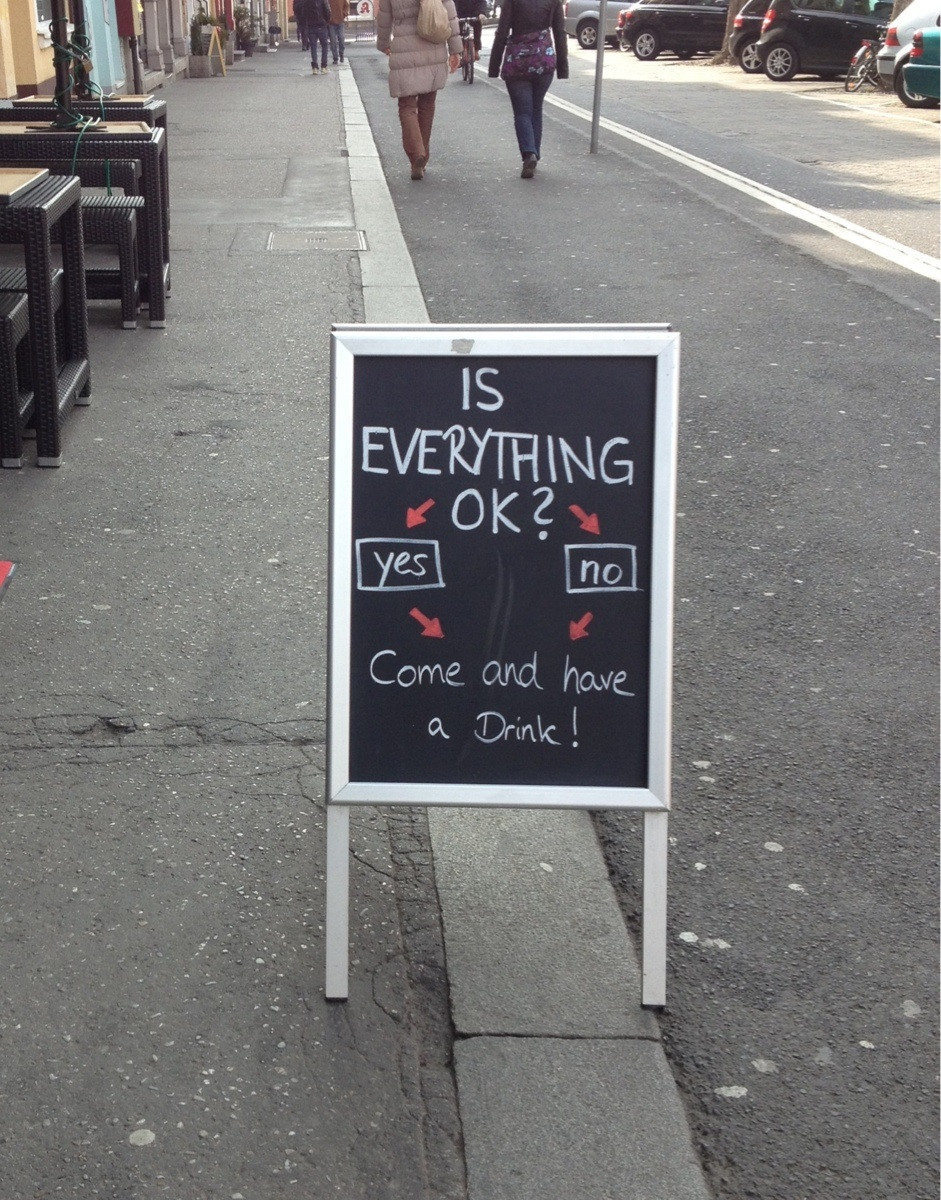 IS
EVERYTHING
OK?
yes no
Come and have
a Drink!